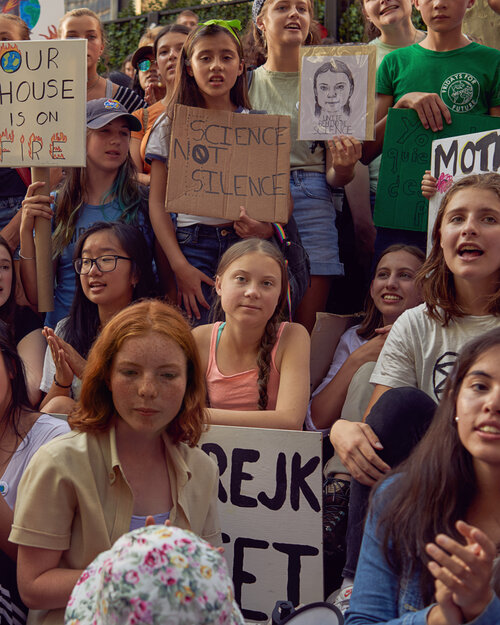 OUR
HOUSE
IS ON
FIRE
SCIENCE
NOT
SILENCE
UNITE
BEHIND THE
SCIENCE
FRIDAYS FOR
FUTURE
quie
de
MOT
REJK
ET